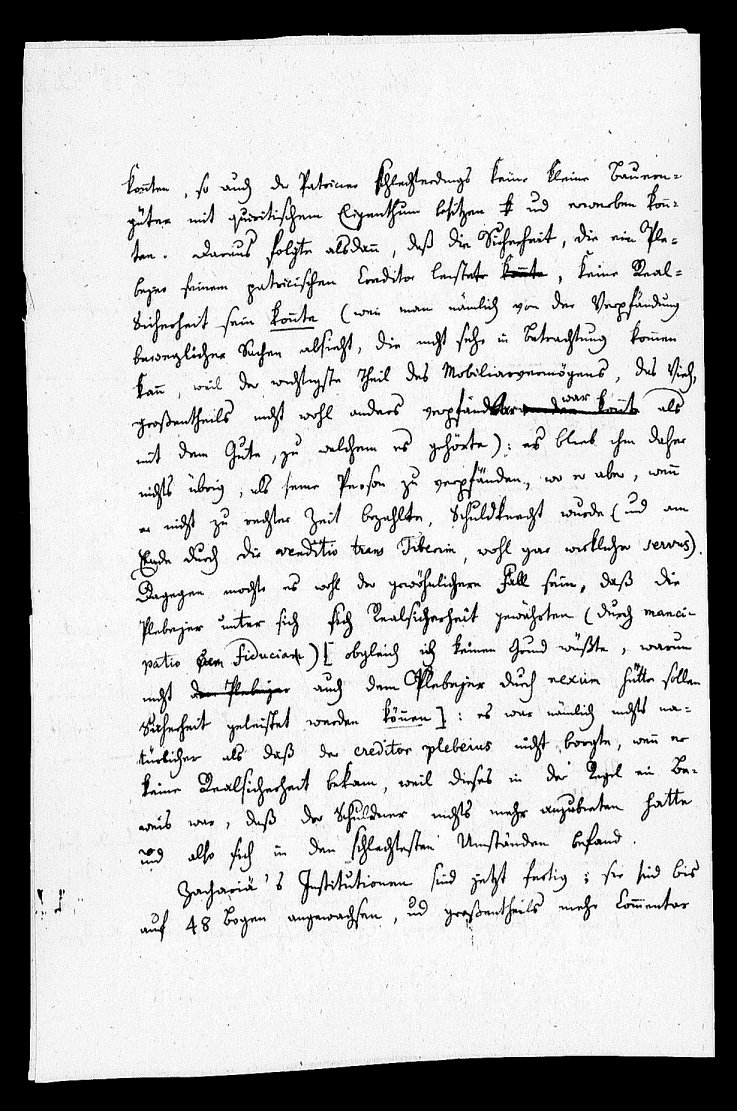 konnten, so auch die Patricier schlechterdings keine kleine Bauern-
güter mit quiritischem Eigenthum besitzen und erwerben konn-
ten. Daraus folgte alsdann, daß die Sicherheit, die ein Ple-
bejer seinem patricischen Creditor leistete konnte, keine Real-
Sicherheit sein konnte (wenn man nämlich von der Verpfändung
beweglicher Sachen absieht, die nicht sehr in Betrachtung kommen
kann, weil der wichtigste Theil des Mobiliarvermögens, das Vieh,
großentheils nicht wohl anders verpfändbar war als
mit dem Gute, zu welchem es gehörte): es blieb ihm daher
nichts übrig, als seine Person zu verpfänden, wo er aber, wenn
er nicht zu rechter Zeit bezahlte, Schuldknecht wurde (und am
Ende durch die venditio trans Tiberim, wohl gar wirklicher servus).
Dagegen mochte es wohl der gewöhnlichere Fall sein, daß die
Plebejer unter sich sich Realsicherheit gewährten (durch manci-
patio Fiduciae) [obgleich ich keinen Grund wüßte, warum
nicht dem Plebejer auch dem Plebejer durch nexum hätte sollen
Sicherheit geleistet werden können]: es war nämlich nichts na-
türlicher als daß der creditor plebeius nicht borgte, wenn er
keine Realsicherheit bekam, weil dieses in der Regel ein Be-
weis war, daß der Schuldner nichts mehr anzubieten hatte
und also sich in den schlechtesten Umständen befand.
Zachariä's Institutionen sind jetzt fertig; sie sind bis
auf 48 Bogen angewachsen, und großentheils mehr Commentar